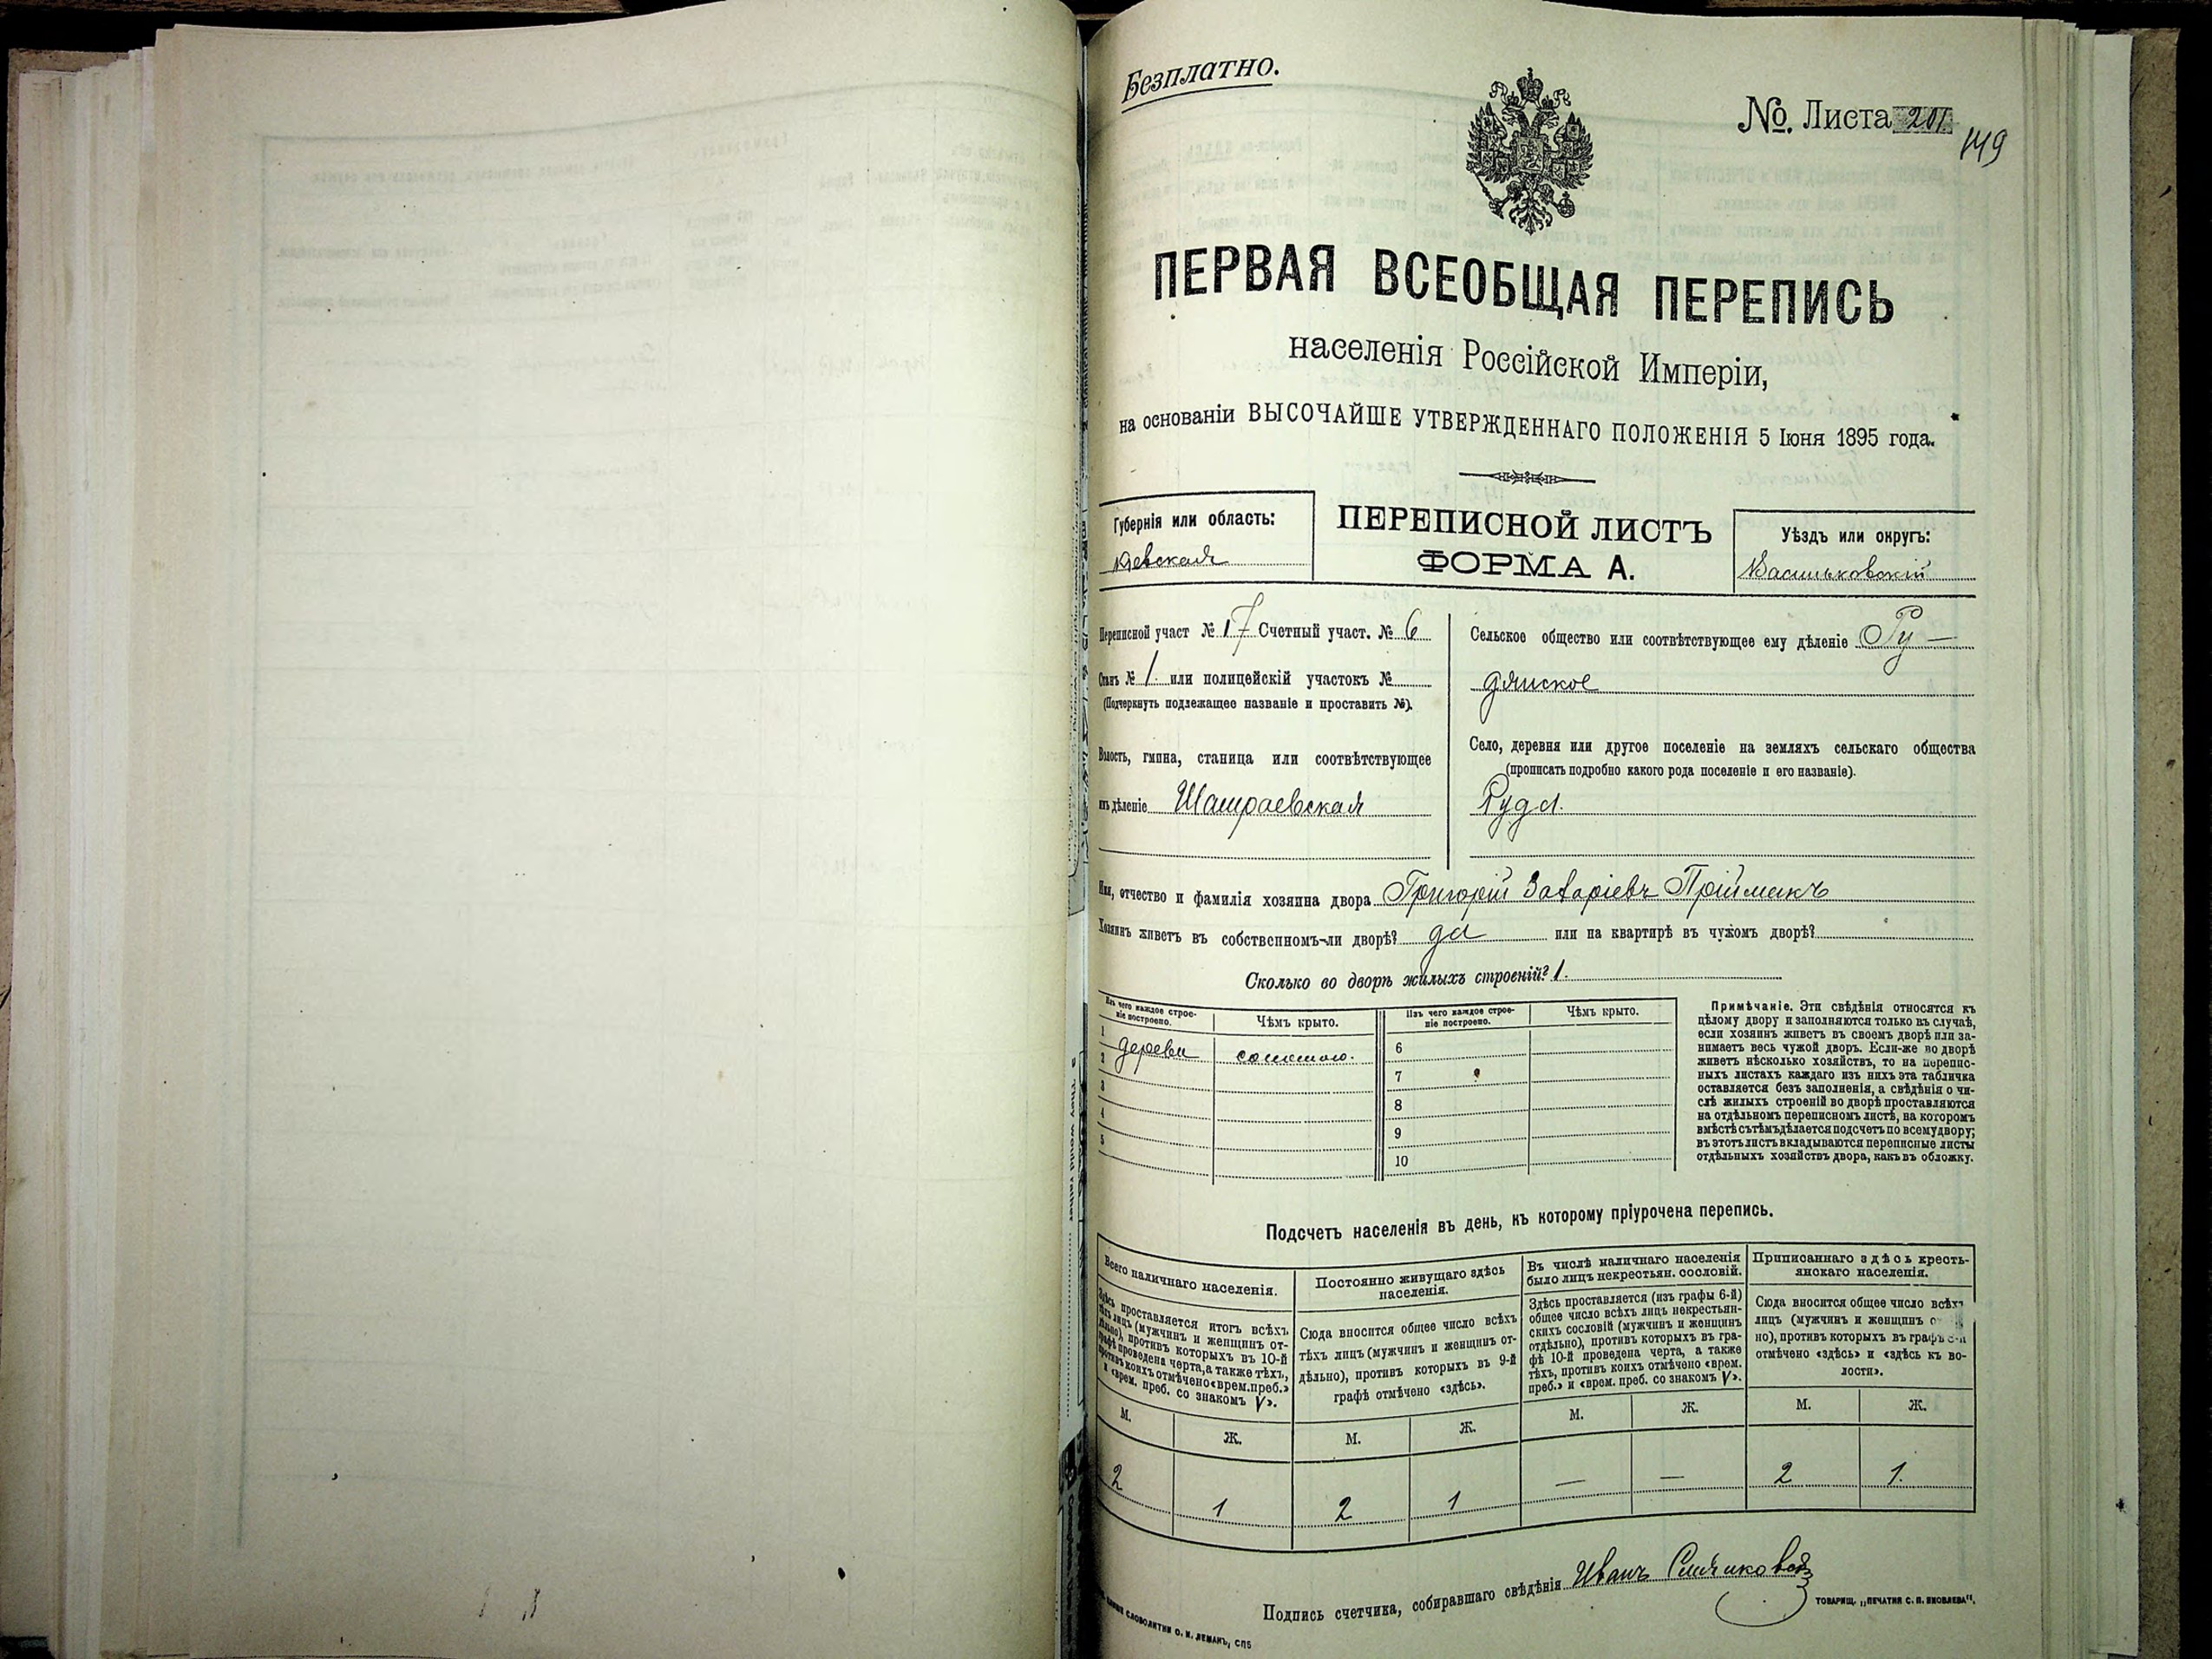 Безплатно.
№. Листа 201
149
ПЕРВАЯ ВСЕОБЩАЯ ПЕРЕПИСЬ
населенія Россійской Имперіи,
на основаніи ВЫСОЧАЙШЕ УТВЕРЖДЕННАГО ПОЛОЖЕНІЯ 5 Іюня 1895 года.
Губернія или область:
Кіевская
ПЕРЕПИСНОЙ ЛИСТЪ
ФОРМА А.
Уѣздъ или округъ:
Васильковскій
Переписной участ № 17 Счетный участ. № 6
Станъ № 1. или полицейскій участокъ №
(Подчеркнуть подлежащее названіе и проставить №).
Волость, гмина, станица или соотвѣтствующее
имъ дѣленіе Шамраевская
Сельское общество или соотвѣтствующее ему дѣленіе Ру—
дянское
Село, деревня или другое поселеніе на земляхъ сельскаго общества
(прописать подробно какого рода поселеніе и его названіе).
Руда.
Имя, отчество и фамилія хозяина двора Григорій Захаріевъ Пріймакъ
Хозяинъ живетъ въ собственномъ-ли дворѣ? да или на квартирѣ въ чужомъ дворѣ?
Сколько во дворѣ жилыхъ строеній? 1.
Изъ чего каждое строе-
ніе построено.
Чѣмъ крыто.
Изъ чего каждое строе-
ніе построено.
Чѣмъ крыто.
1 дерева соломою.
2
3
4
5
6
7
8
9
10
Примѣчаніе. Эти свѣдѣнія относятся къ
цѣлому двору и заполняются только въ случаѣ,
если хозяинъ живетъ въ своемъ дворѣ или за-
нимаетъ весь чужой дворъ. Если-же во дворѣ
живетъ нѣсколько хозяйствъ, то на перепис-
ныхъ листахъ каждаго изъ нихъ эта табличка
оставляется безъ заполненія, а свѣдѣнія о чи-
слѣ жилыхъ строеній во дворѣ проставляются
на отдѣльномъ переписномъ листѣ, на которомъ
вмѣстѣ съ тѣмъ дѣлается подсчетъ по всему двору;
въ этотъ листъ вкладываются переписные листы
отдѣльныхъ хозяйствъ двора, какъ въ обложку.
Подсчетъ населенія въ день, къ которому пріурочена перепись.
Всего наличнаго населенія.
Здѣсь проставляется итогъ всѣхъ
тѣхъ лицъ (мужчинъ и женщинъ от-
дѣльно), противъ которыхъ въ 10-й
графѣ проведена черта, а также тѣхъ,
противъ коихъ отмѣчено «врем. преб.»
и «врем. преб. со знакомъ V».
М. Ж.
2 1
Постоянно живущаго здѣсь
населенія.
Сюда вносится общее число всѣхъ
тѣхъ лицъ (мужчинъ и женщинъ от-
дѣльно), противъ которыхъ въ 9-й
графѣ отмѣчено «здѣсь».
М. Ж.
2 1
Въ числѣ наличнаго населенія
было лицъ некрестьян. сословій.
Здѣсь проставляется (изъ графы 6-й)
общее число всѣхъ лицъ некрестьян-
скихъ сословій (мужчинъ и женщинъ
отдѣльно), противъ которыхъ въ гра-
фѣ 10-й проведена черта, а также
тѣхъ, противъ коихъ отмѣчено «врем.
преб.» и «врем. преб. со знакомъ V».
М. Ж.
— —
Приписаннаго здѣсь кресть-
янскаго населенія.
Сюда вносится общее число всѣхъ
лицъ (мужчинъ и женщинъ
но), противъ которыхъ въ графѣ
отмѣчено «здѣсь» и «здѣсь къ во-
лости».
М. Ж.
2 1.
Подпись счетчика, собиравшаго свѣдѣнія Иванъ
СЛОВОЛИТНИ О. И. ЛЕМАНЪ, СПБ
ТОВАРИЩ. „ПЕЧАТНЯ С. П. ЯКОВЛЕВА".